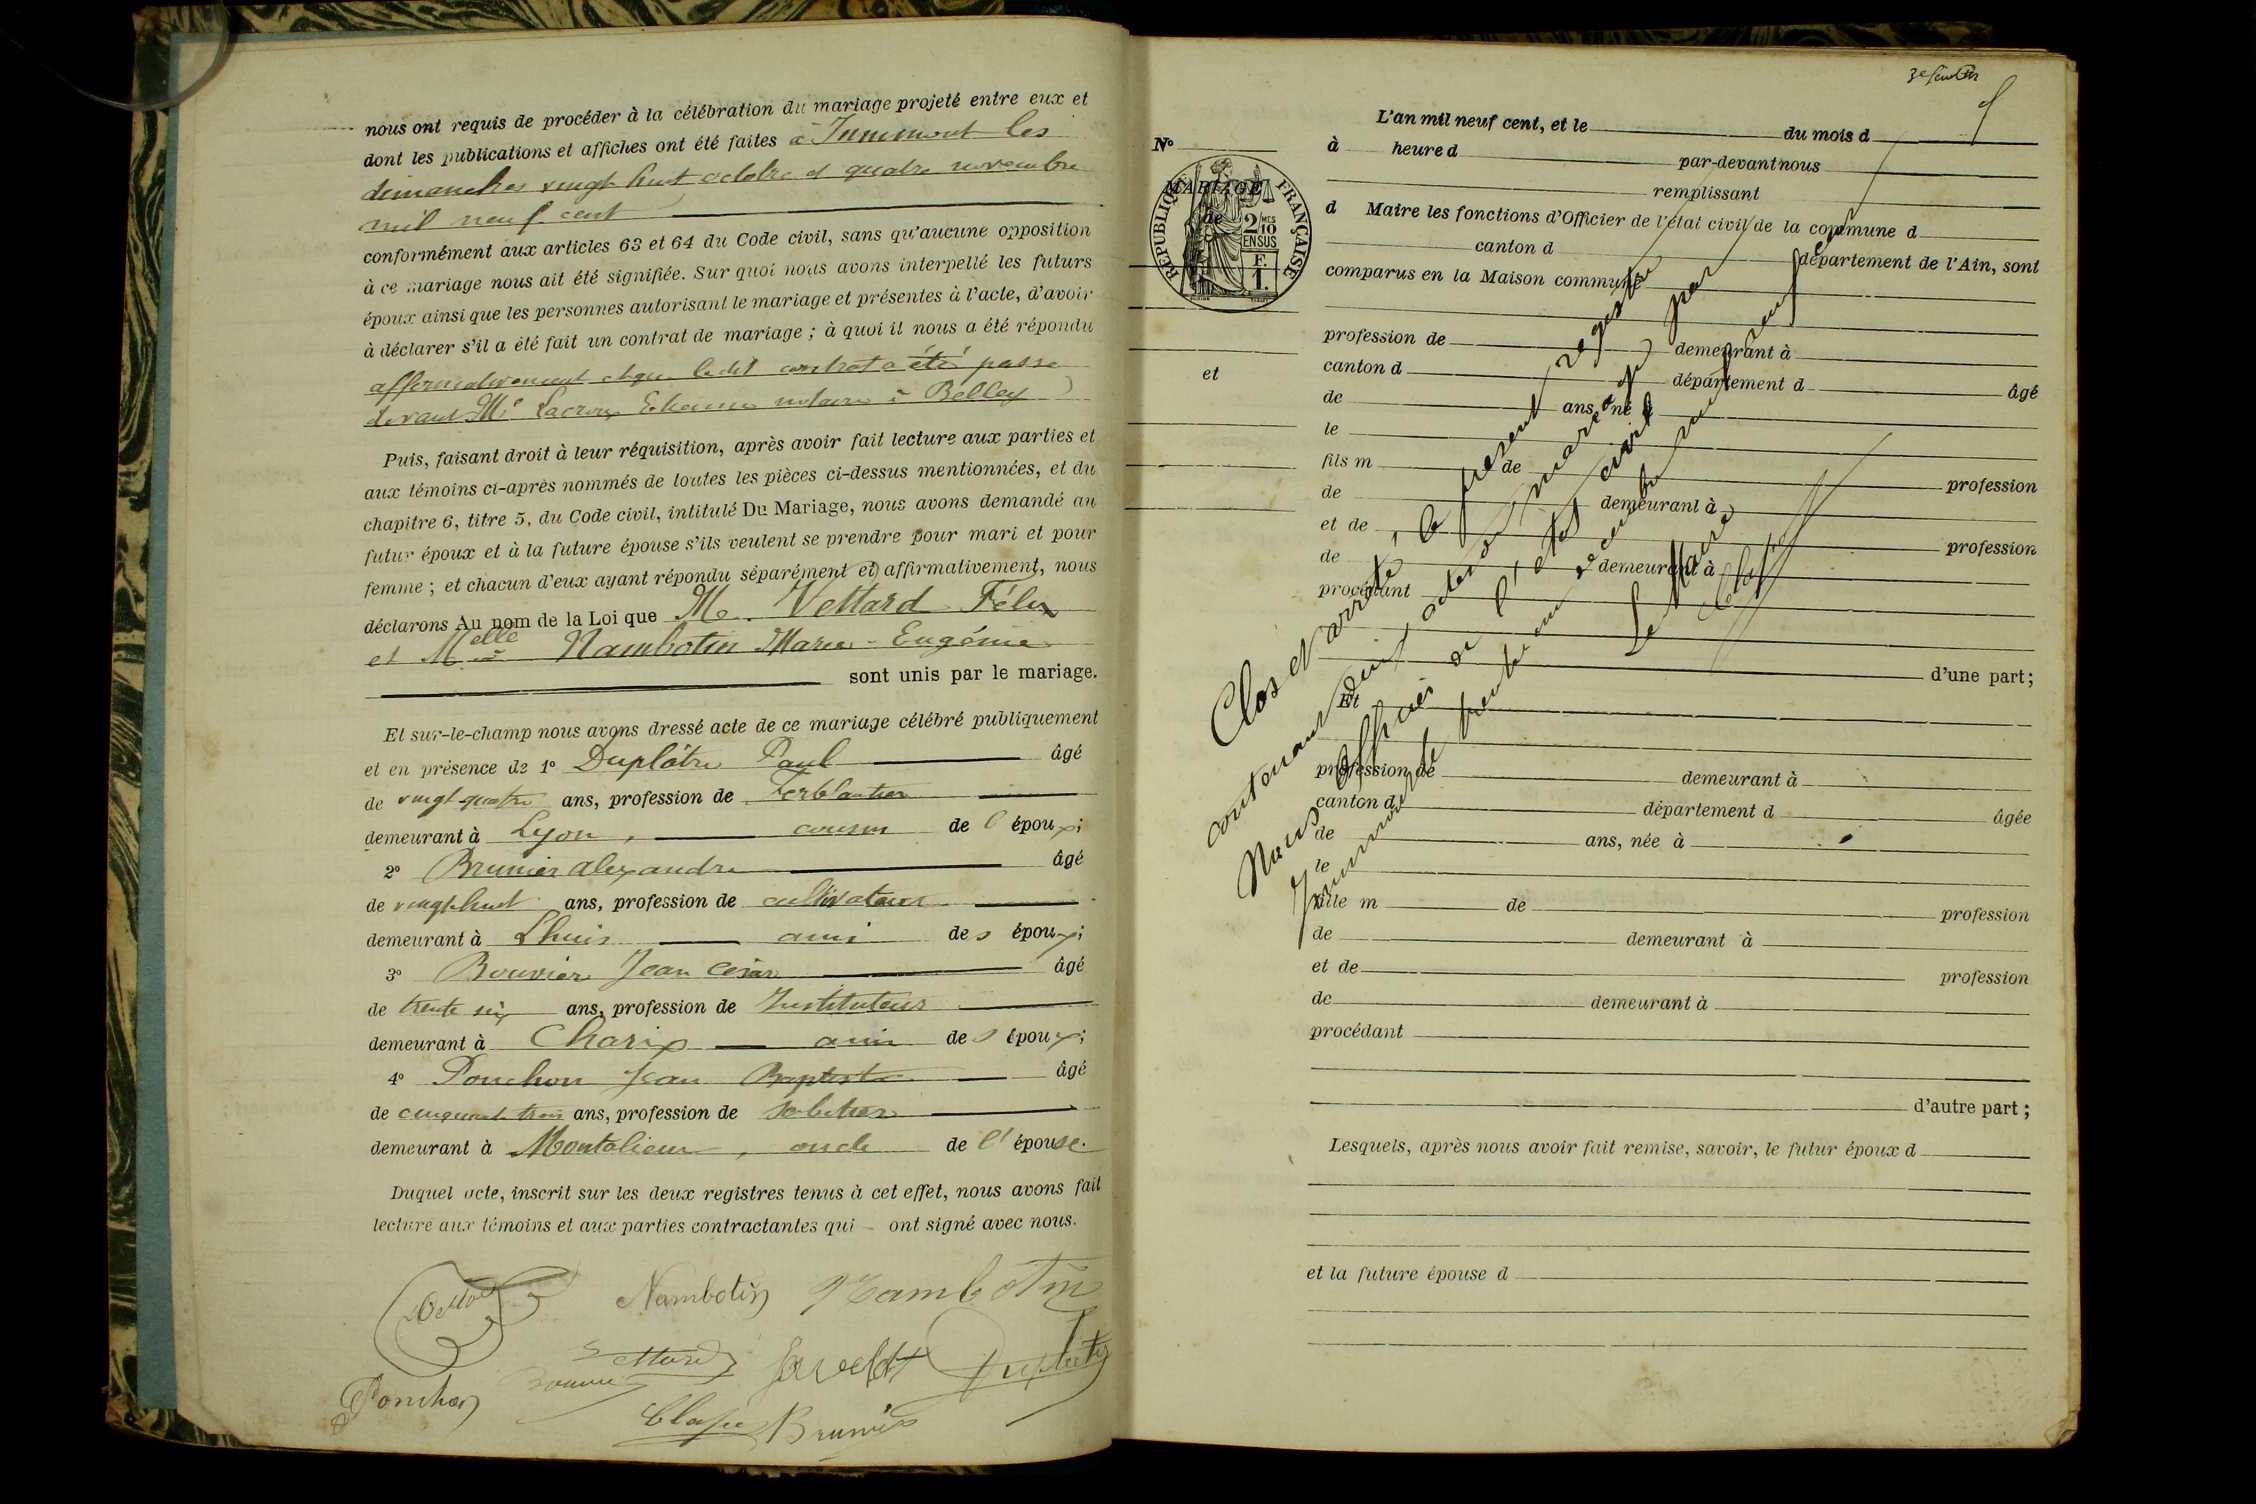 nous ont requis de procéder à la célébration du mariage projeté entre eux et
dont les publications et affiches ont été faites à Innimont les
dimanches vingt huit octobre et quatre novembre
mil neuf cent
conformément aux articles 63 et 64 du Code civil, sans qu'aucune opposition
à ce mariage nous ait été signifiée. Sur quoi nous avons interpellé les futurs
époux ainsi que les personnes autorisant le mariage et présentes à l'acte, d'avoir
à déclarer s'il a été fait un contrat de mariage ; à quoi il nous a été répondu
affirmativement et que ledit contrat a été passé
devant Me Lacroix Etienne notaire à Belley
Puis, faisant droit à leur réquisition, après avoir fait lecture aux parties et
aux témoins ci-après nommés de toutes les pièces ci-dessus mentionnées, et du
chapitre 6, titre 5, du Code civil, intitulé Du Mariage, nous avons demandé au
futur époux et à la future épouse s'ils veulent se prendre pour mari et pour
femme ; et chacun d'eux ayant répondu séparément et affirmativement, nous
déclarons Au nom de la Loi que M. Vettard Félix
et Melle Nambotin Marie-Eugénie
sont unis par le mariage.
Et sur-le-champ nous avons dressé acte de ce mariage célébré publiquement
et en présence de 1° Duplâtre Paul âgé
de vingt quatre ans, profession de Ferblantier
demeurant à Lyon, cousin de l'époux;
2° Brunier Alexandre âgé
de vingt huit ans, profession de cultivateur
demeurant à Lhuis ami des époux;
3° Bouvier Jean César âgé
de trente six ans, profession de Instituteur
demeurant à Charix ami des époux;
4° Ponchon Jean Baptiste âgé
de cinquante trois ans, profession de sabotier
demeurant à Montalieu, oncle de l'épouse.
Duquel acte, inscrit sur les deux registres tenus à cet effet, nous avons fait
lecture aux témoins et aux parties contractantes qui ont signé avec nous.
Vettard Nambotin Nambotin
Vettard Duplatre
Ponchon Bouvier
Brunier
3e feuillet
L'an mil neuf cent, et le du mois d
N°
à heure d par-devant nous
remplissant
MARIAGE
de
RÉPUBLIQUE FRANÇAISE
2/10 MES
EN SUS
F.
1.
d Maire les fonctions d'Officier de l'état civil de la commune d
canton d département de l'Ain, sont
comparus en la Maison commune
profession de demeurant à
et
canton d département d âgé
de ans, né à
le
fils m de profession
de demeurant à
et de profession
de demeurant à
procédant
d'une part;
Et
profession de demeurant à
canton d département d âgée
de ans, née à
le
fille m de profession
de demeurant à
et de profession
de demeurant à
procédant
d'autre part;
Lesquels, après nous avoir fait remise, savoir, le futur époux d
et la future épouse d
Clos et arrêté, le présent registre
contenant actes de mariage par
Nous Officier de l'état civil
Innimont le trente un décembre mil neuf cent
Le Maire